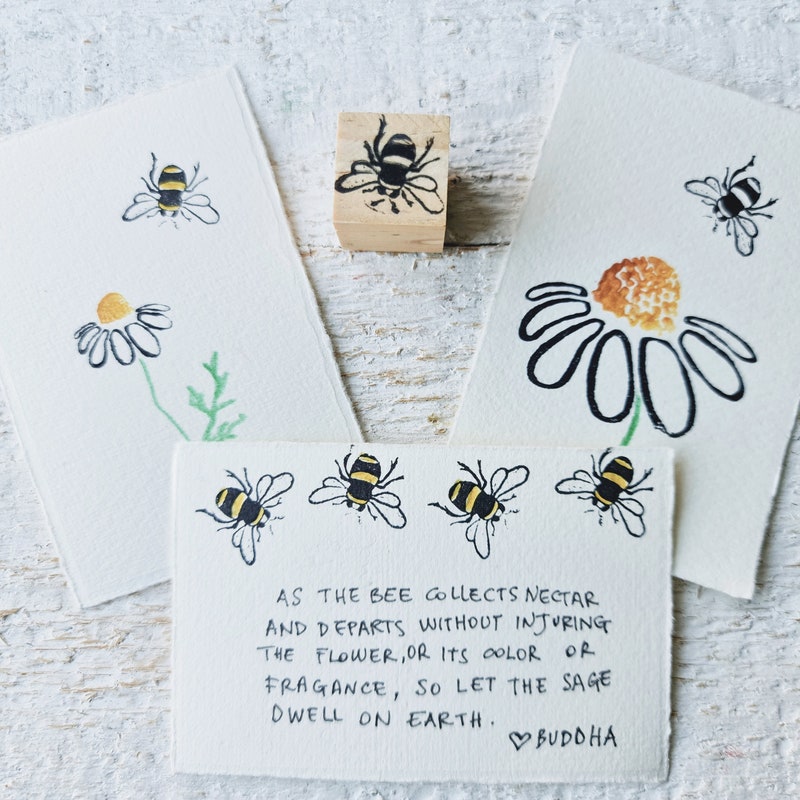 AS THE BEE COLLECTS NECTAR
AND DEPARTS WITHOUT INJURING
THE FLOWER, OR ITS COLOR OR
FRAGANCE, SO LET THE SAGE
DWELL ON EARTH.
♡BUDDHA